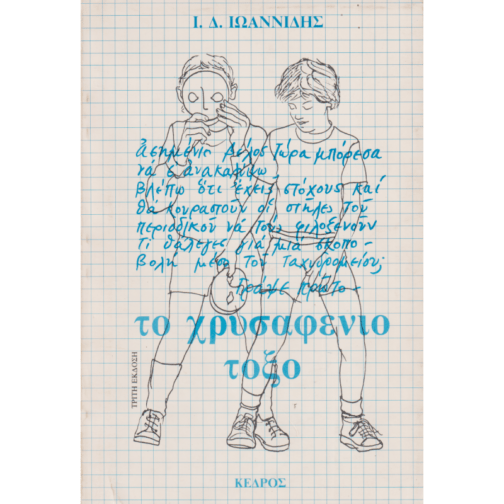 Ι. Δ. ΙΩΑΝΝΙΔΗΣ
Ἀσημένιο βέλος τώρα μπόρεσα
νά σ' ἀνακαλύψω
βλέπω ὅτι ἔχεις στόχους καί
θά κουραστοῦν οἱ στῆλες τοῦ
περιοδικοῦ νά τους φιλοξενοῦν
Τί θἄλεγες γιά μιά σκοπο-
βολή μέσω τοῦ Ταχυδρομείου;
Γράψε πρῶτο-
το χρυσαφενιο
τοξο
ΤΡΙΤΗ ΕΚΔΟΣΗ
ΚΕΔΡΟΣ